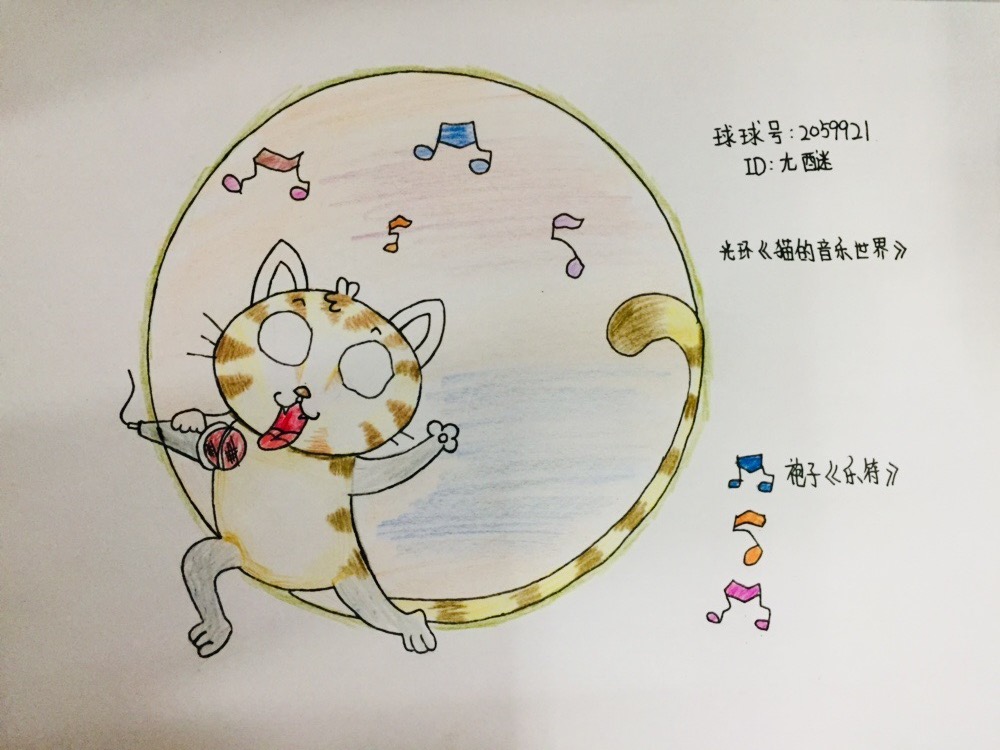 球球号:2059921
ID:尢醚
光环《猫的音乐世界》
袍子《乐符》